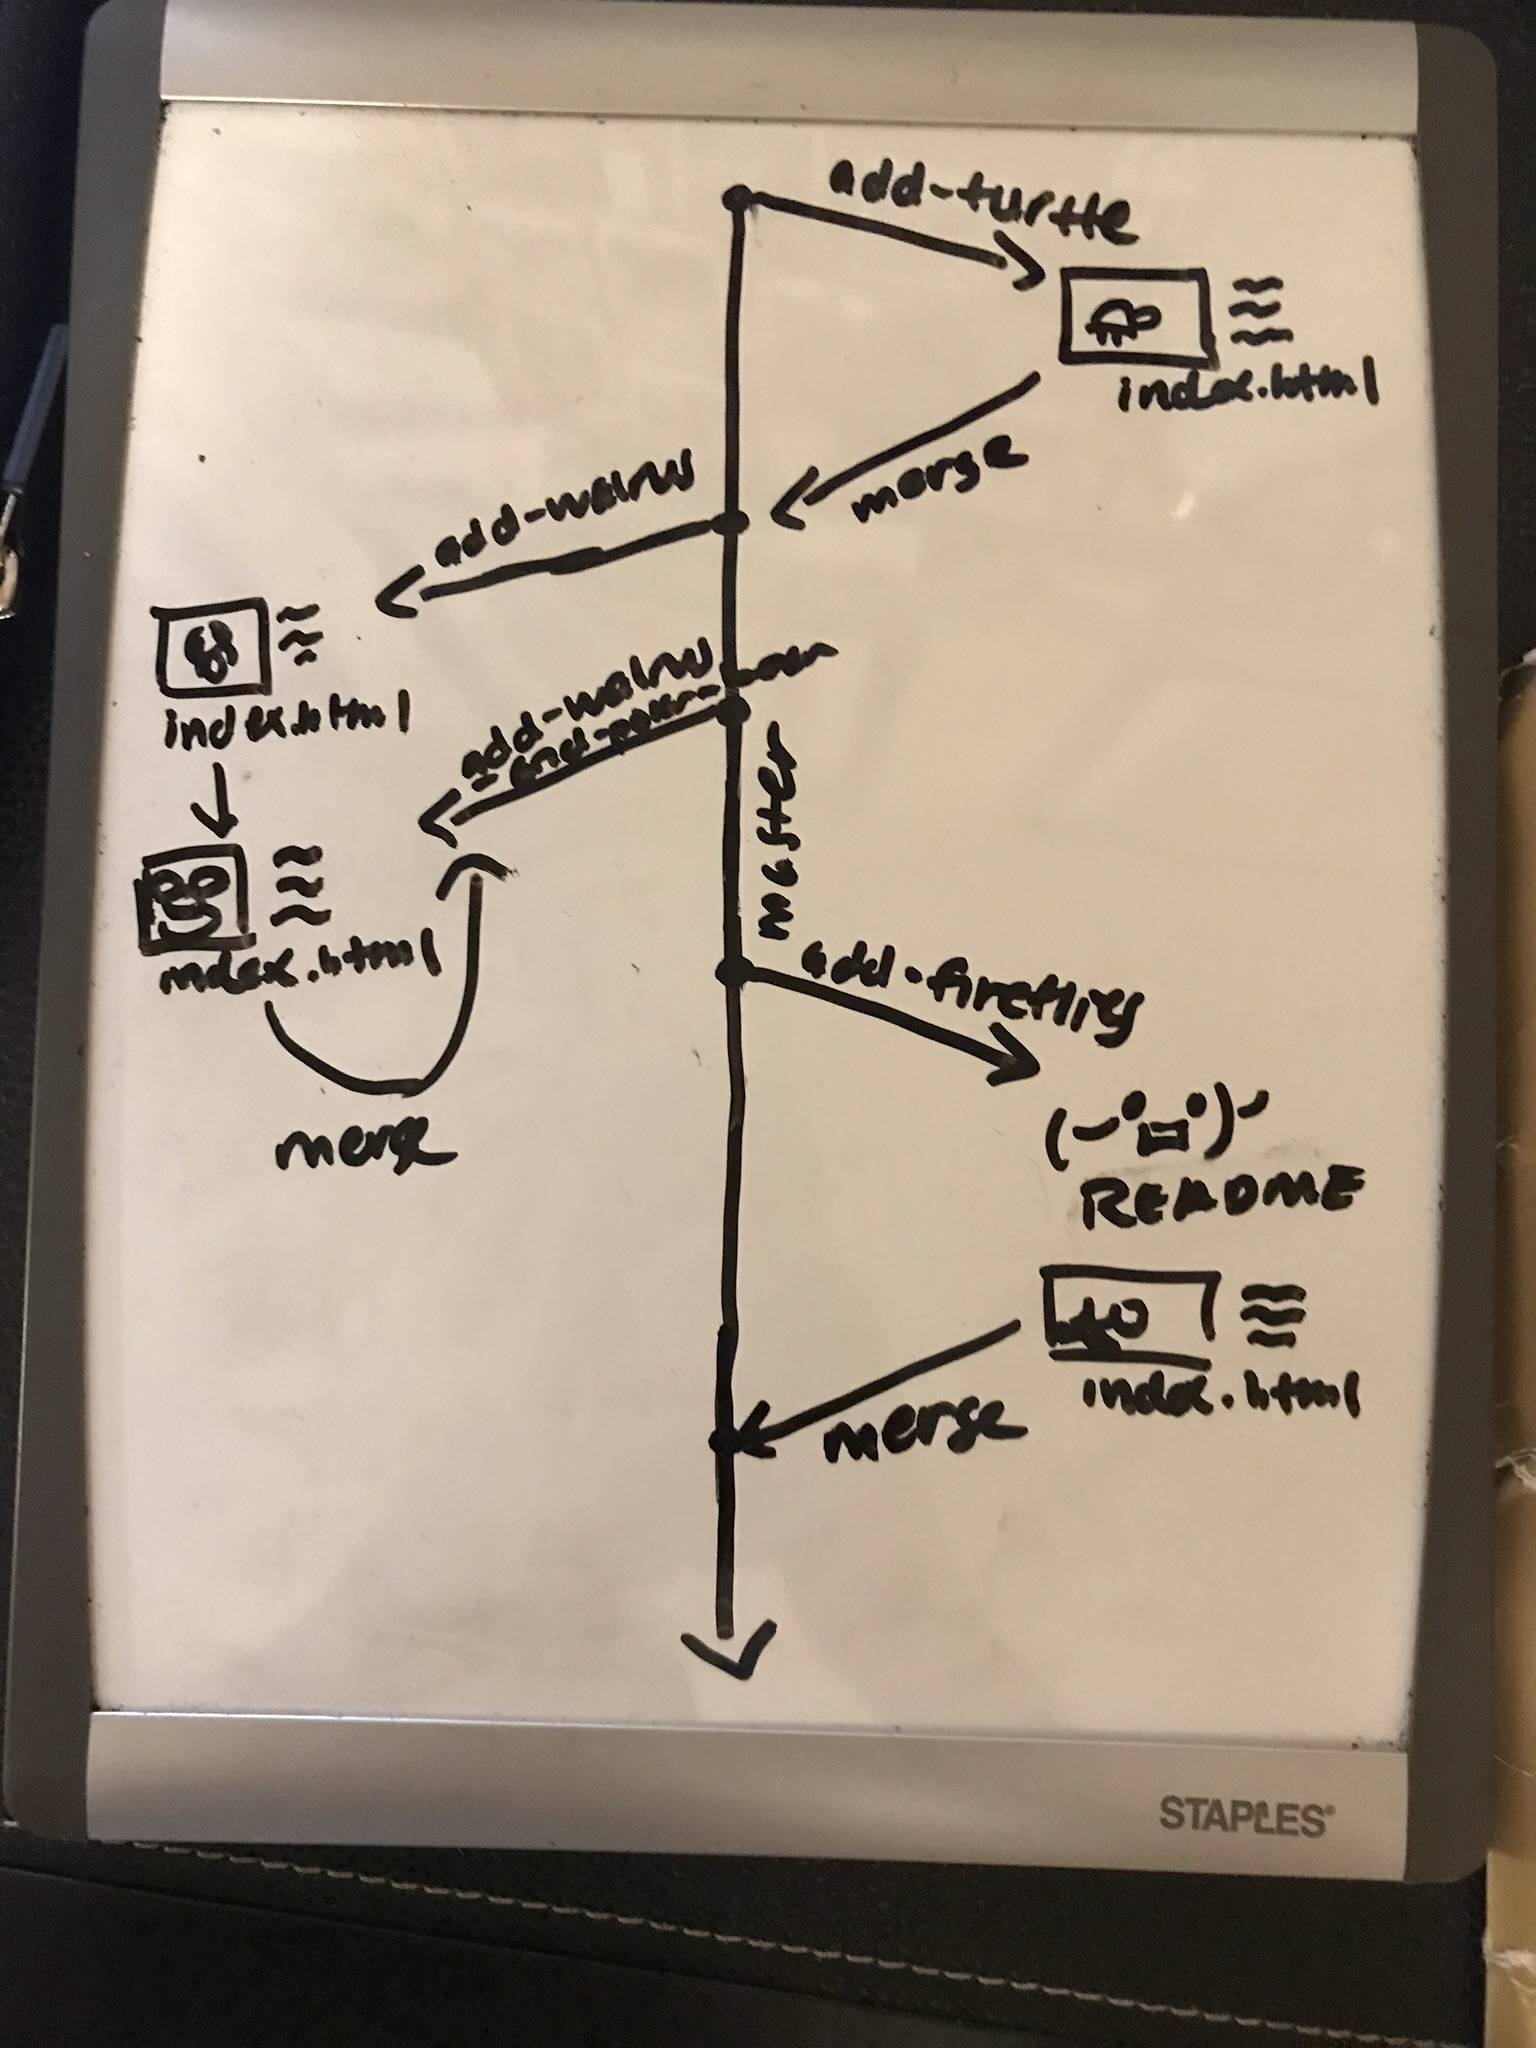 add-turtle
index.html
merge
add-walrus
index.html
add-walrus
master
index.html
add-fireflies
merge
README
index.html
merge
STAPLES